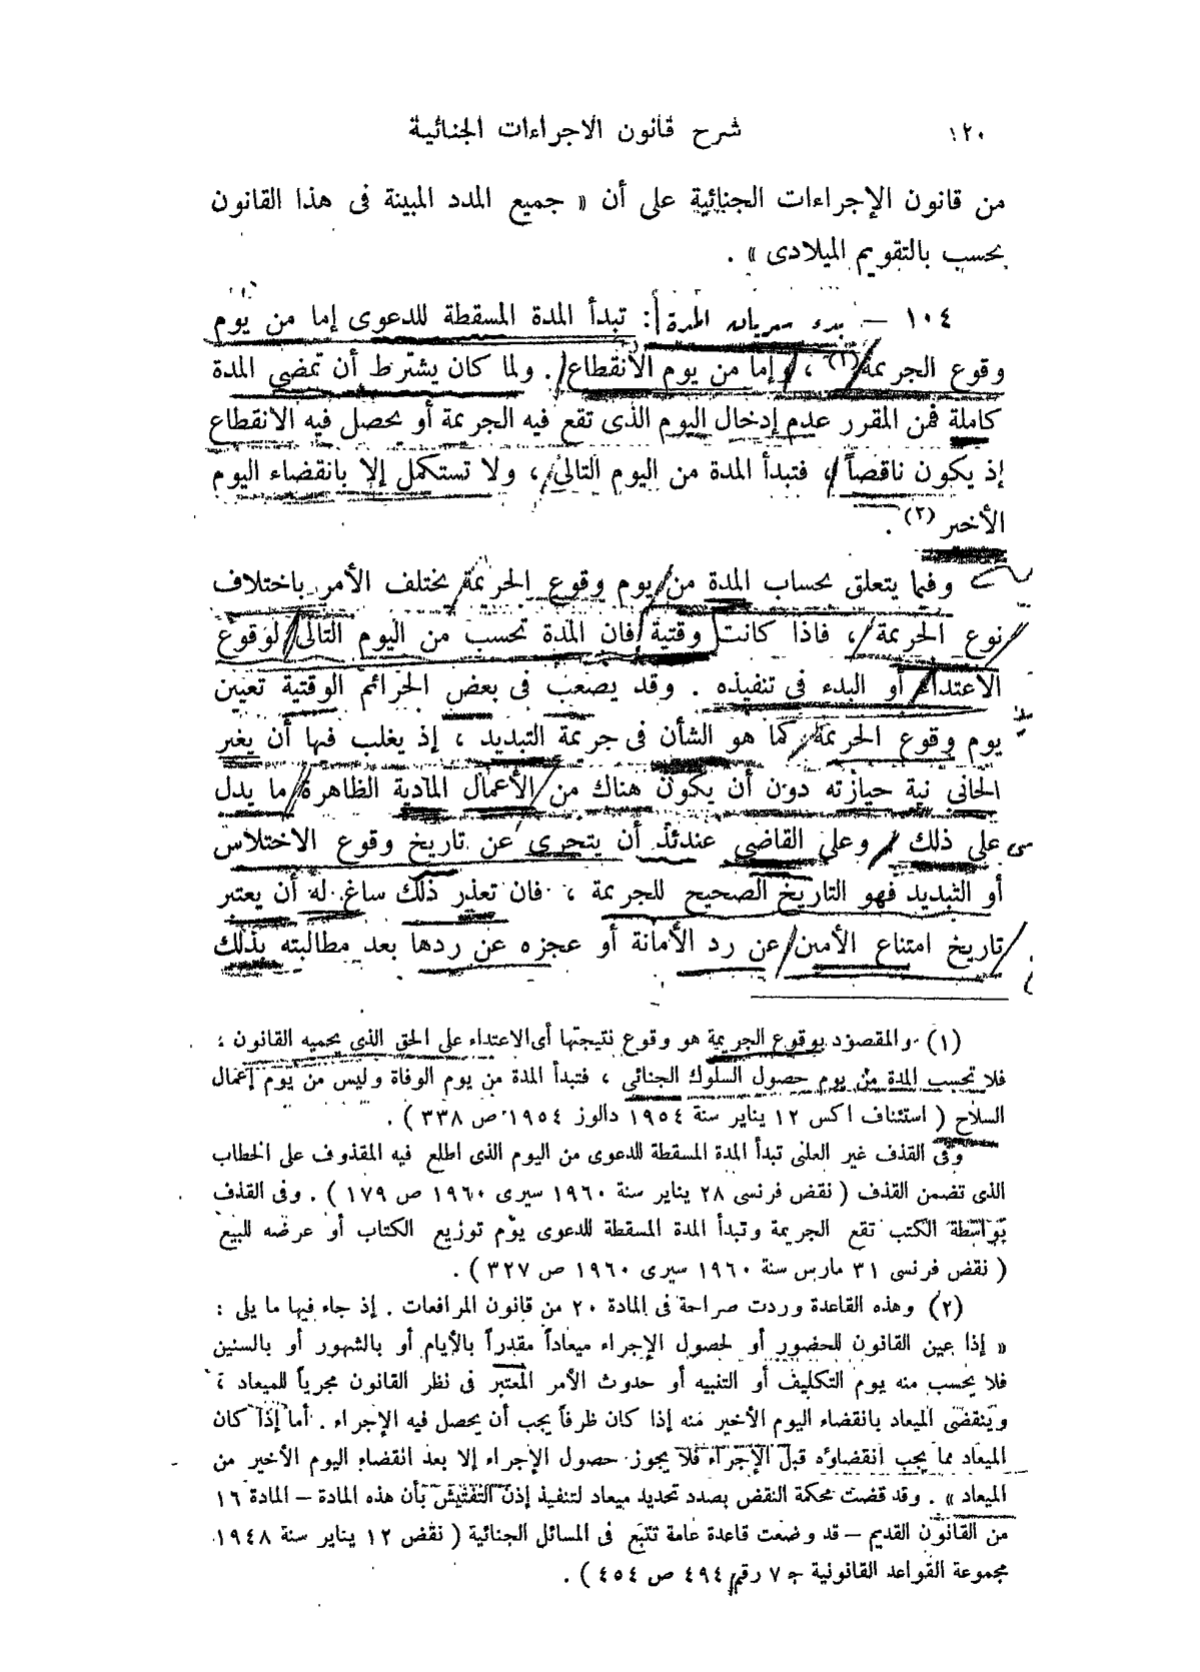 ١٢٠ شرح قانون الاجراءات الجنائية
من قانون الإجراءات الجنائية على أن « جميع المدد المبينة فى هذا القانون
تحسب بالتقويم الميلادى » .
١٠٤ — بدء سريان المدة : تبدأ المدة المسقطة للدعوى إما من يوم
وقوع الجريمة (١) ، وإما من يوم الانقطاع . ولما كان يشترط أن تمضى المدة
كاملة فمن المقرر عدم إدخال اليوم الذى تقع فيه الجريمة أو يحصل فيه الانقطاع
إذ يكون ناقصاً ، فتبدأ المدة من اليوم التالى ، ولا تستكمل إلا بانقضاء اليوم
الأخير (٢) .
وفيما يتعلق بحساب المدة من يوم وقوع الجريمة يختلف الأمر باختلاف
نوع الجريمة ، فاذا كانت وقتية فان المدة تحسب من اليوم التالى لوقوع
الاعتداء أو البدء فى تنفيذه . وقد يصعب فى بعض الجرائم الوقتية تعيين
يوم وقوع الجريمة كما هو الشأن فى جريمة التبديد ، إذ يغلب فيها أن يغير
الجانى نية حيازته دون أن يكون هناك من الأعمال المادية الظاهرة ما يدل
على ذلك ، وعلى القاضى عندئذ أن يتحرى عن تاريخ وقوع الاختلاس
أو التبديد فهو التاريخ الصحيح للجريمة ، فان تعذر ذلك ساغ له أن يعتبر
تاريخ امتناع الأمين عن رد الأمانة أو عجزه عن ردها بعد مطالبته بذلك
(١) والمقصود بوقوع الجريمة هو وقوع نتيجتها أى الاعتداء على الحق الذى يحميه القانون ؛
فلا تحسب المدة من يوم حصول السلوك الجنائى ، فتبدأ المدة من يوم الوفاة وليس من يوم إعمال
السلاح ( استئناف اكس ١٢ يناير سنة ١٩٥٤ دالوز ١٩٥٤ ص ٣٣٨ ) .
وفى القذف غير العلنى تبدأ المدة المسقطة للدعوى من اليوم الذى اطلع فيه المقذوف على الخطاب
الذى تضمن القذف ( نقض فرنسى ٢٨ يناير سنة ١٩٦٠ سيرى ١٩٦٠ ص ١٧٩ ) . وفى القذف
بواسطة الكتب تقع الجريمة وتبدأ المدة المسقطة للدعوى يوم توزيع الكتاب أو عرضه للبيع
( نقض فرنسى ٣١ مارس سنة ١٩٦٠ سيرى ١٩٦٠ ص ٣٢٧ ) .
(٢) وهذه القاعدة وردت صراحة فى المادة ٢٠ من قانون المرافعات . إذ جاء فيها ما يلى :
« إذا عين القانون للحضور أو لحصول الإجراء ميعاداً مقدراً بالأيام أو بالشهور أو بالسنين
فلا يحسب منه يوم التكليف أو التنبيه أو حدوث الأمر المعتبر فى نظر القانون مجرياً للميعاد ،
وينقضى الميعاد بانقضاء اليوم الأخير منه إذا كان ظرفاً يجب أن يحصل فيه الإجراء . أما إذا كان
الميعاد مما يجب انقضاؤه قبل الإجراء فلا يجوز حصول الإجراء إلا بعد انقضاء اليوم الأخير من
الميعاد » . وقد قضت محكمة النقض بصدد تحديد ميعاد لتنفيذ إذن التفتيش بأن هذه المادة – المادة ١٦
من القانون القديم – قد وضعت قاعدة عامة تتبع فى المسائل الجنائية ( نقض ١٢ يناير سنة ١٩٤٨
مجموعة القواعد القانونية جـ ٧ رقم ٤٩٤ ص ٤٥٤ ) .